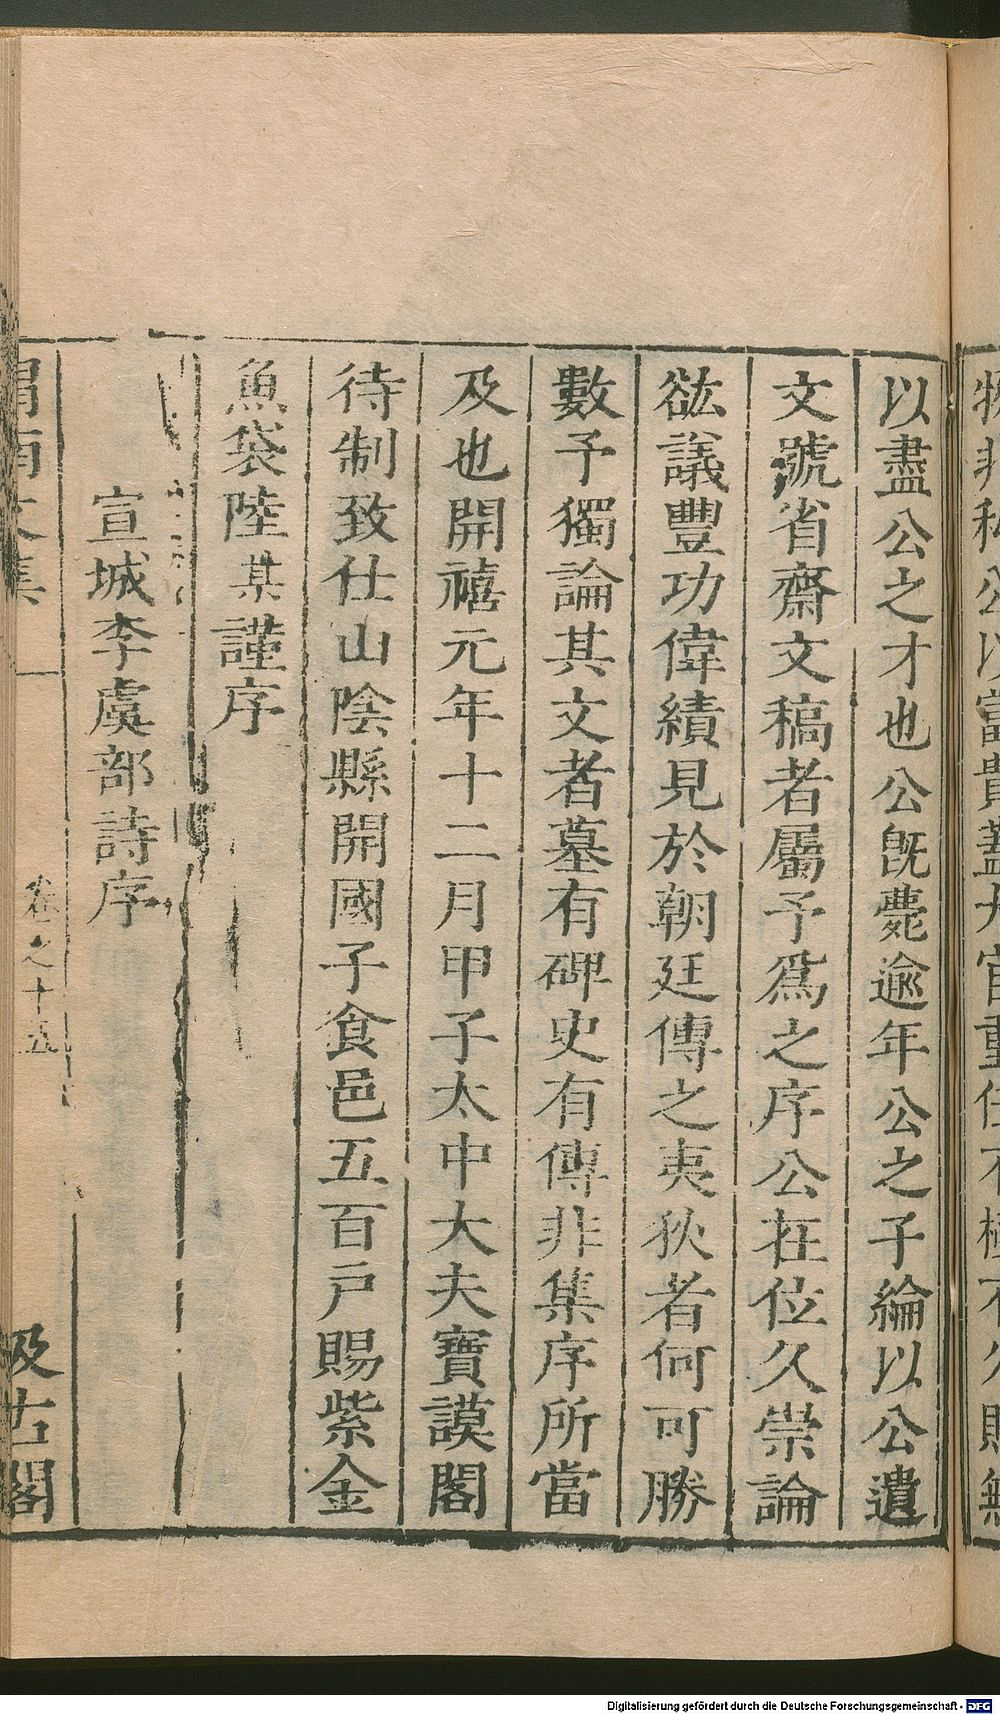 以盡公之才也公旣薨逾年公之子綸以公遺
文號省齋文稿者屬予爲之序公在位久崇論
谹議豐功偉績見於朝廷傳之夷狄者何可勝
數予獨論其文者墓有碑史有傳非集序所當
及也開禧元年十二月甲子太中大夫寶謨閣
待制致仕山陰縣開國子食邑五百戶賜紫金
魚袋陸某謹序
宣城李虞部詩序
渭南文集
卷之十五
汲古閣
Digitalisierung gefördert durch die Deutsche Forschungsgemeinschaft - DFG